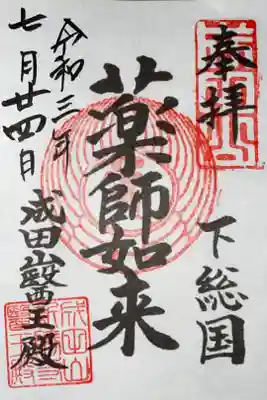 奉拝
下総国
薬師如来
令和三年
七月廿四日
成田山醫王殿